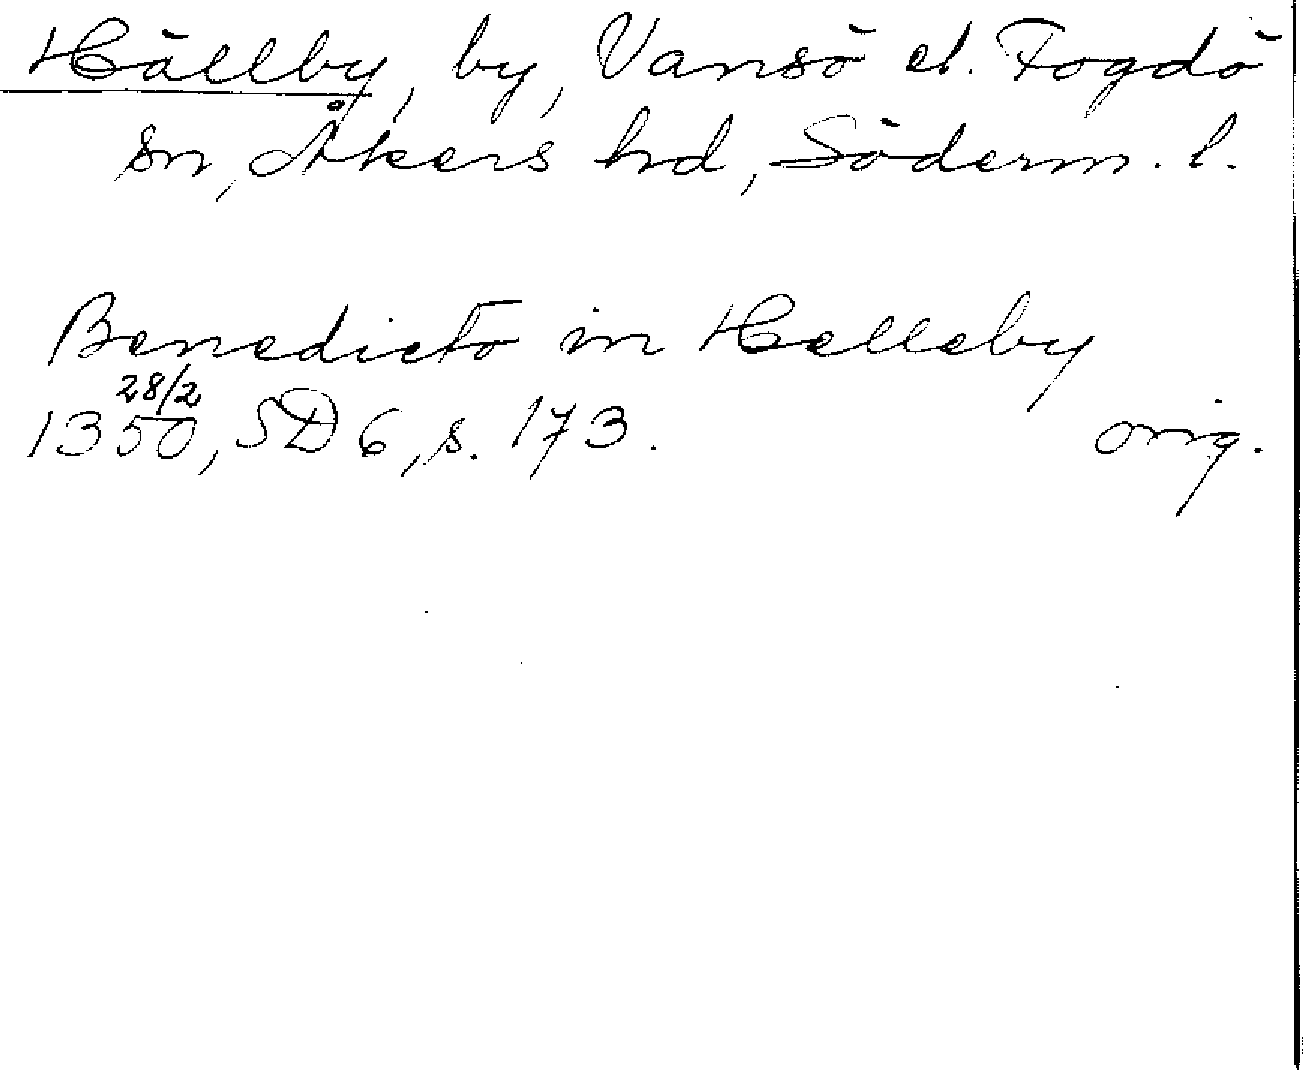 Hällby, by, Vansö el. Fogdö
sn, Åkers hd, Söderm. l.
Benedicto in Helleby
28/2
1350, SD 6, s. 173. orig.